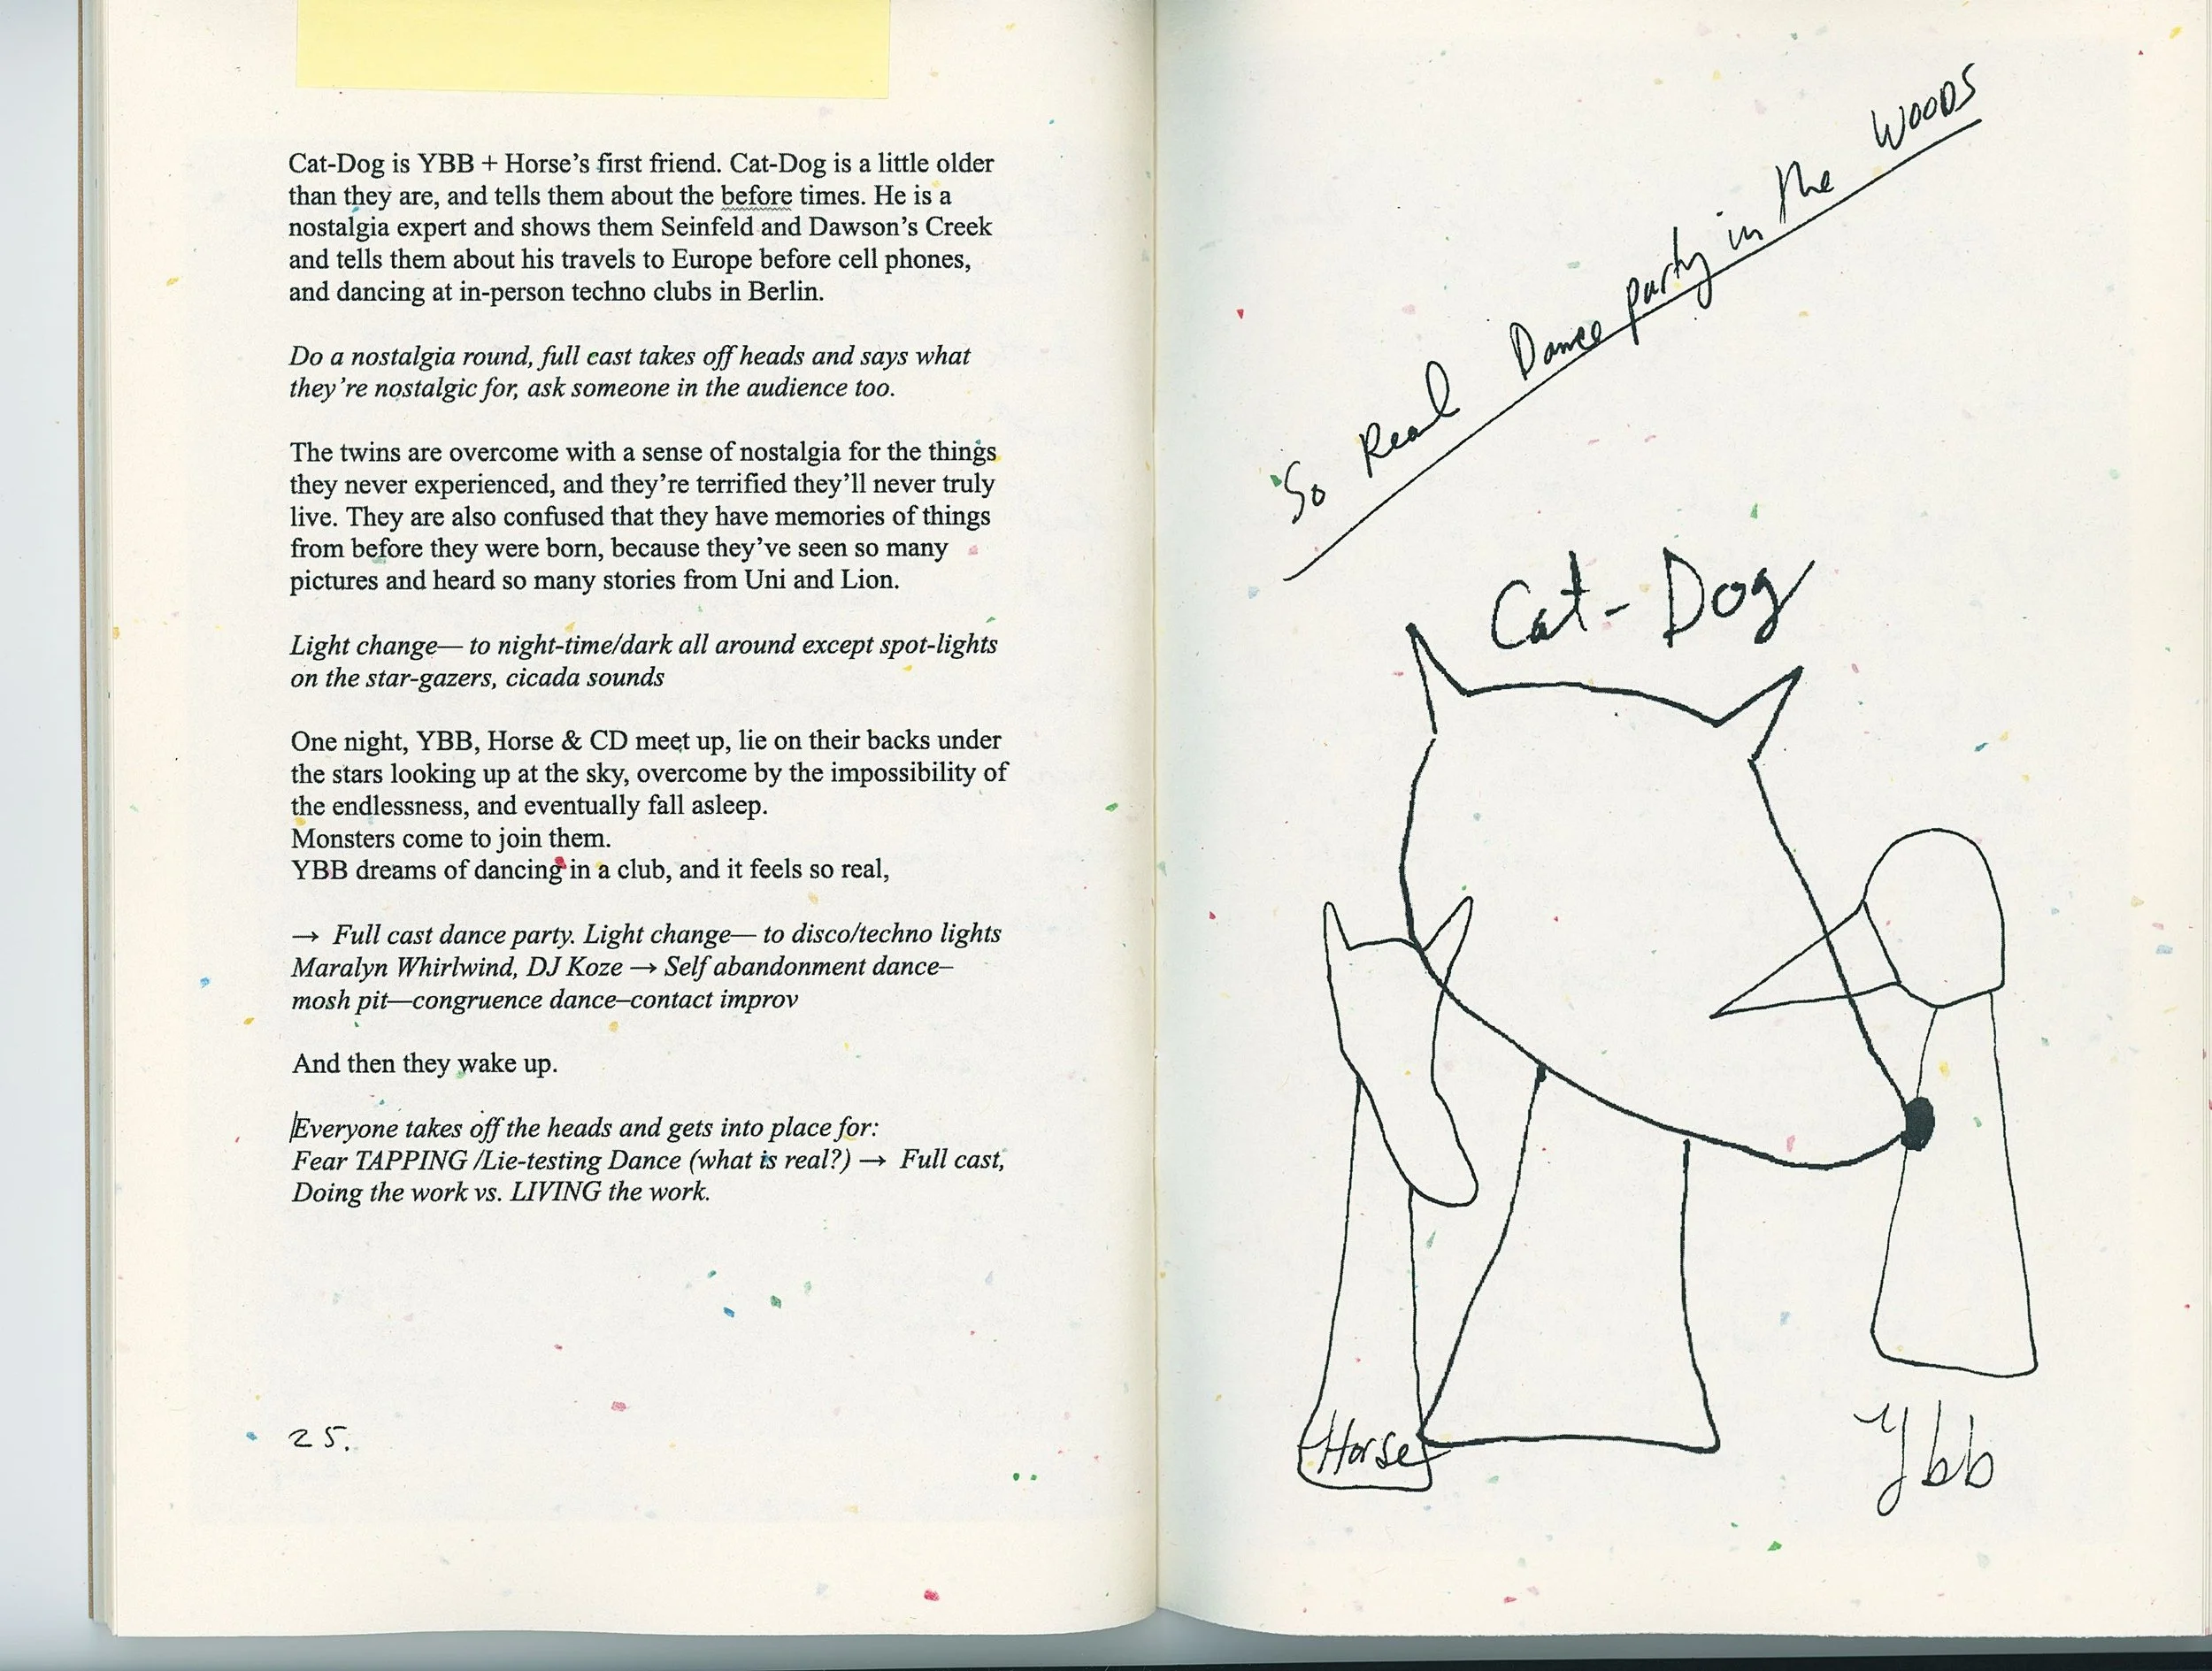 Cat-Dog is YBB + Horse’s first friend. Cat-Dog is a little older
than they are, and tells them about the before times. He is a
nostalgia expert and shows them Seinfeld and Dawson’s Creek
and tells them about his travels to Europe before cell phones,
and dancing at in-person techno clubs in Berlin.
Do a nostalgia round, full cast takes off heads and says what
they’re nostalgic for, ask someone in the audience too.
The twins are overcome with a sense of nostalgia for the things
they never experienced, and they’re terrified they’ll never truly
live. They are also confused that they have memories of things
from before they were born, because they’ve seen so many
pictures and heard so many stories from Uni and Lion.
Light change— to night-time/dark all around except spot-lights
on the star-gazers, cicada sounds
One night, YBB, Horse & CD meet up, lie on their backs under
the stars looking up at the sky, overcome by the impossibility of
the endlessness, and eventually fall asleep.
Monsters come to join them.
YBB dreams of dancing in a club, and it feels so real,
→ Full cast dance party. Light change— to disco/techno lights
Maralyn Whirlwind, DJ Koze → Self abandonment dance–
mosh pit—congruence dance–contact improv
And then they wake up.
Everyone takes off the heads and gets into place for:
Fear TAPPING /Lie-testing Dance (what is real?) → Full cast,
Doing the work vs. LIVING the work.
25.
So Real Dance party in the WOODS
Cat-Dog
Horse
Ybb